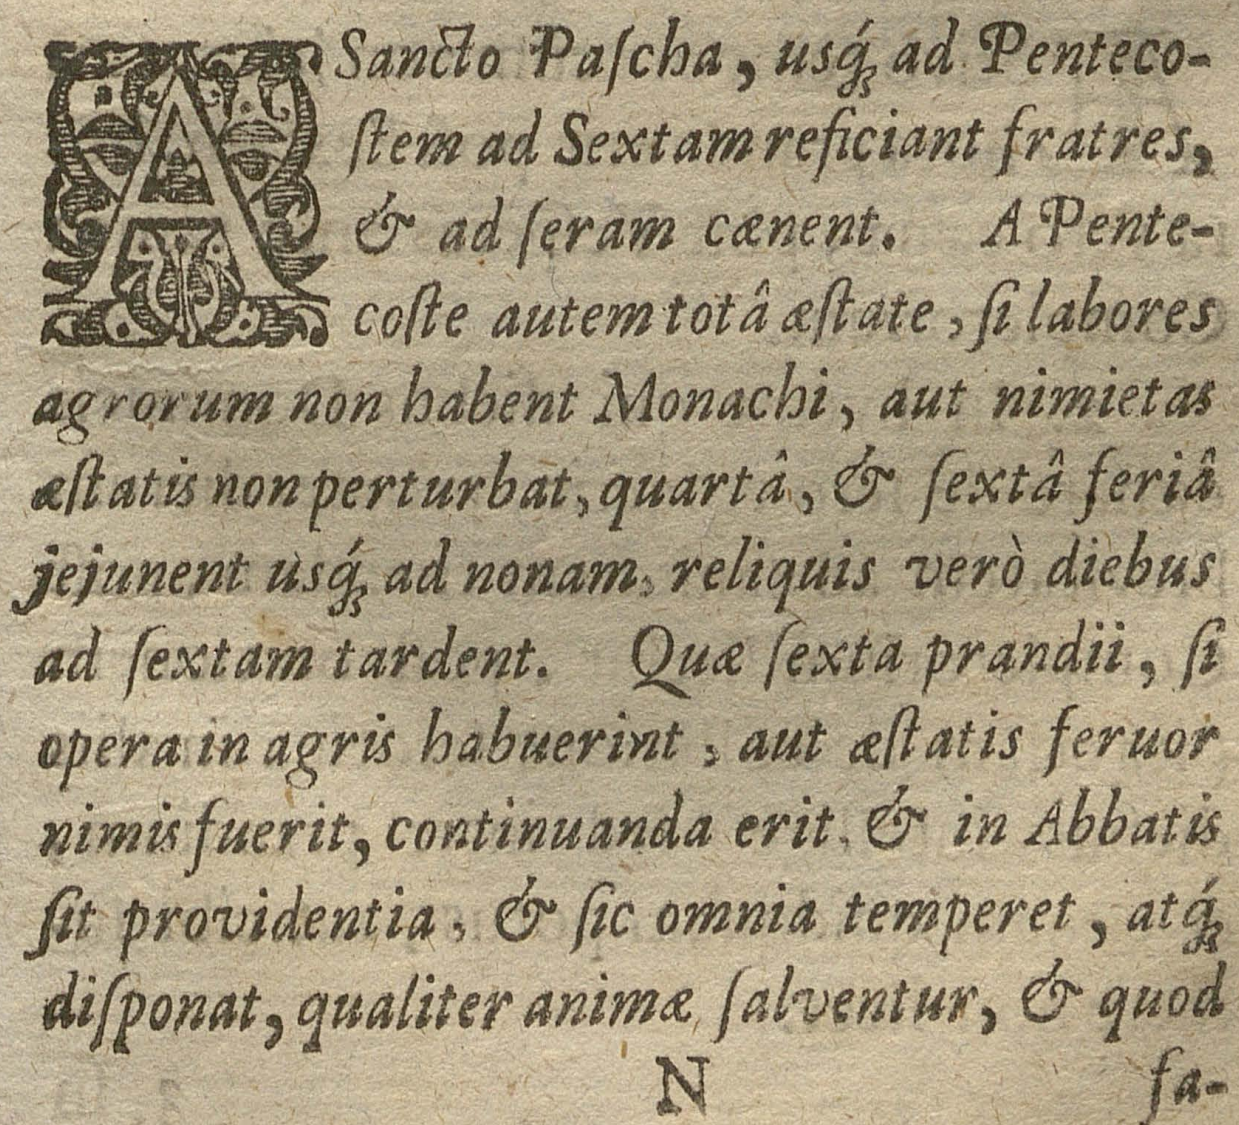 A Sancto Paſcha, usq́; ad Penteco-
ſtem ad Sextam reficiant fratres,
& ad ſeram cænent. A Pente-
coſte autem totâ æſtate, ſi labores
agrorum non habent Monachi, aut nimietas
æſtatis non perturbat, quartâ, & ſextâ feriâ
jejunent usq́; ad nonam, reliquis verò diebus
ad ſextam tardent. Quæ ſexta prandii, ſi
opera in agris habuerint, aut æſtatis feruor
nimis fuerit, continuanda erit, & in Abbatis
ſit providentia, & ſic omnia temperet, atq́;
diſponat, qualiter animæ ſalventur, & quod
N fa-